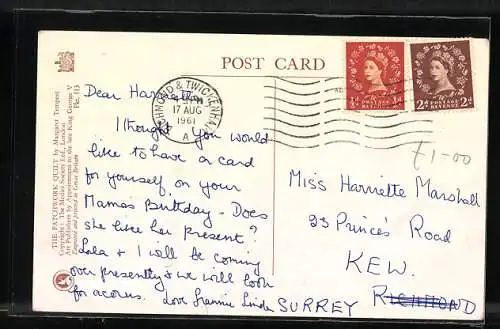 POST CARD
THE PATCHWORK QUILT by Margaret Tempest
Copyright: The Medici Society Ltd., London
Art Publishers by Appointment to the late King George V
Engraved and printed in Great Britain
Pk. 113
RICHMOND & TWICKENHAM
17 AUG
1961
A
½d POSTAGE REVENUE ½d
2d POSTAGE REVENUE 2d
£1-00
Dear
I thought you would
like to have a card
for yourself, on your
Mama's Birthday - Does
she like her present?
Lola + I will be coming
over presently + we will look
for acorns. Love Linda
Miss Harriette Marshall
23 Princes Road
KEW.
SURREY RICHMOND